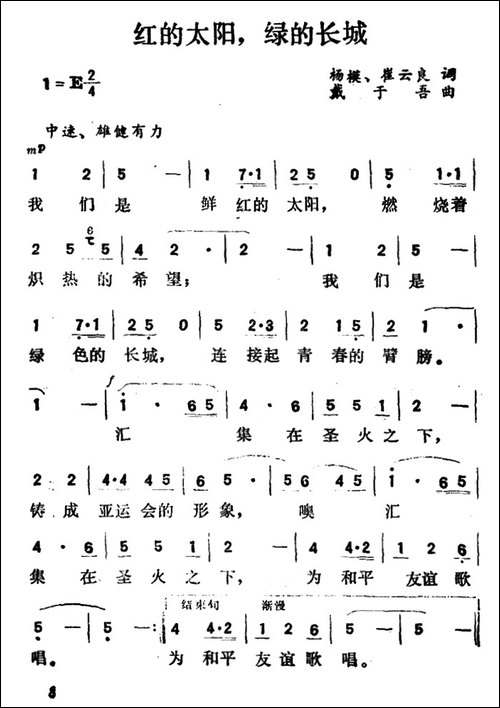 红的太阳，绿的长城
1=E 2/4
杨模、崔云良 词
戴于吾 曲
中速、雄健有力
mp
1 2 | 5 — | 1 7·1 | 2 5 0 | 5 1·1 |
我们是 鲜红的太阳， 燃烧着
2 5 5 | 4 2· | 2 — | 1 2 | 5 — |
炽热的希望； 我们是
1 7·1 | 2 5 0 | 5 2·3 | 2 1 5 | 2 1· |
绿色的长城， 连接起青春的臂膀。
f
1 — | 1· 6 5 | 4· 6 | 5 5 1 | 2 — |
汇 集在圣火之下，
2 2 | 4·4 4 5 | 6 5· | 5 6 4 5 | 1· 6 5 |
铸成亚运会的形象， 噢 汇
4· 6 | 5 5 1 | 2 — | 4 4·2 | 1 2 6 |
集在圣火之下， 为和平友谊歌
结束句 渐慢
5 — | 5 — :| 4 4·2 | 1 2 6 | 5 — | 5 — ‖
唱。 为和平友谊歌唱。
8